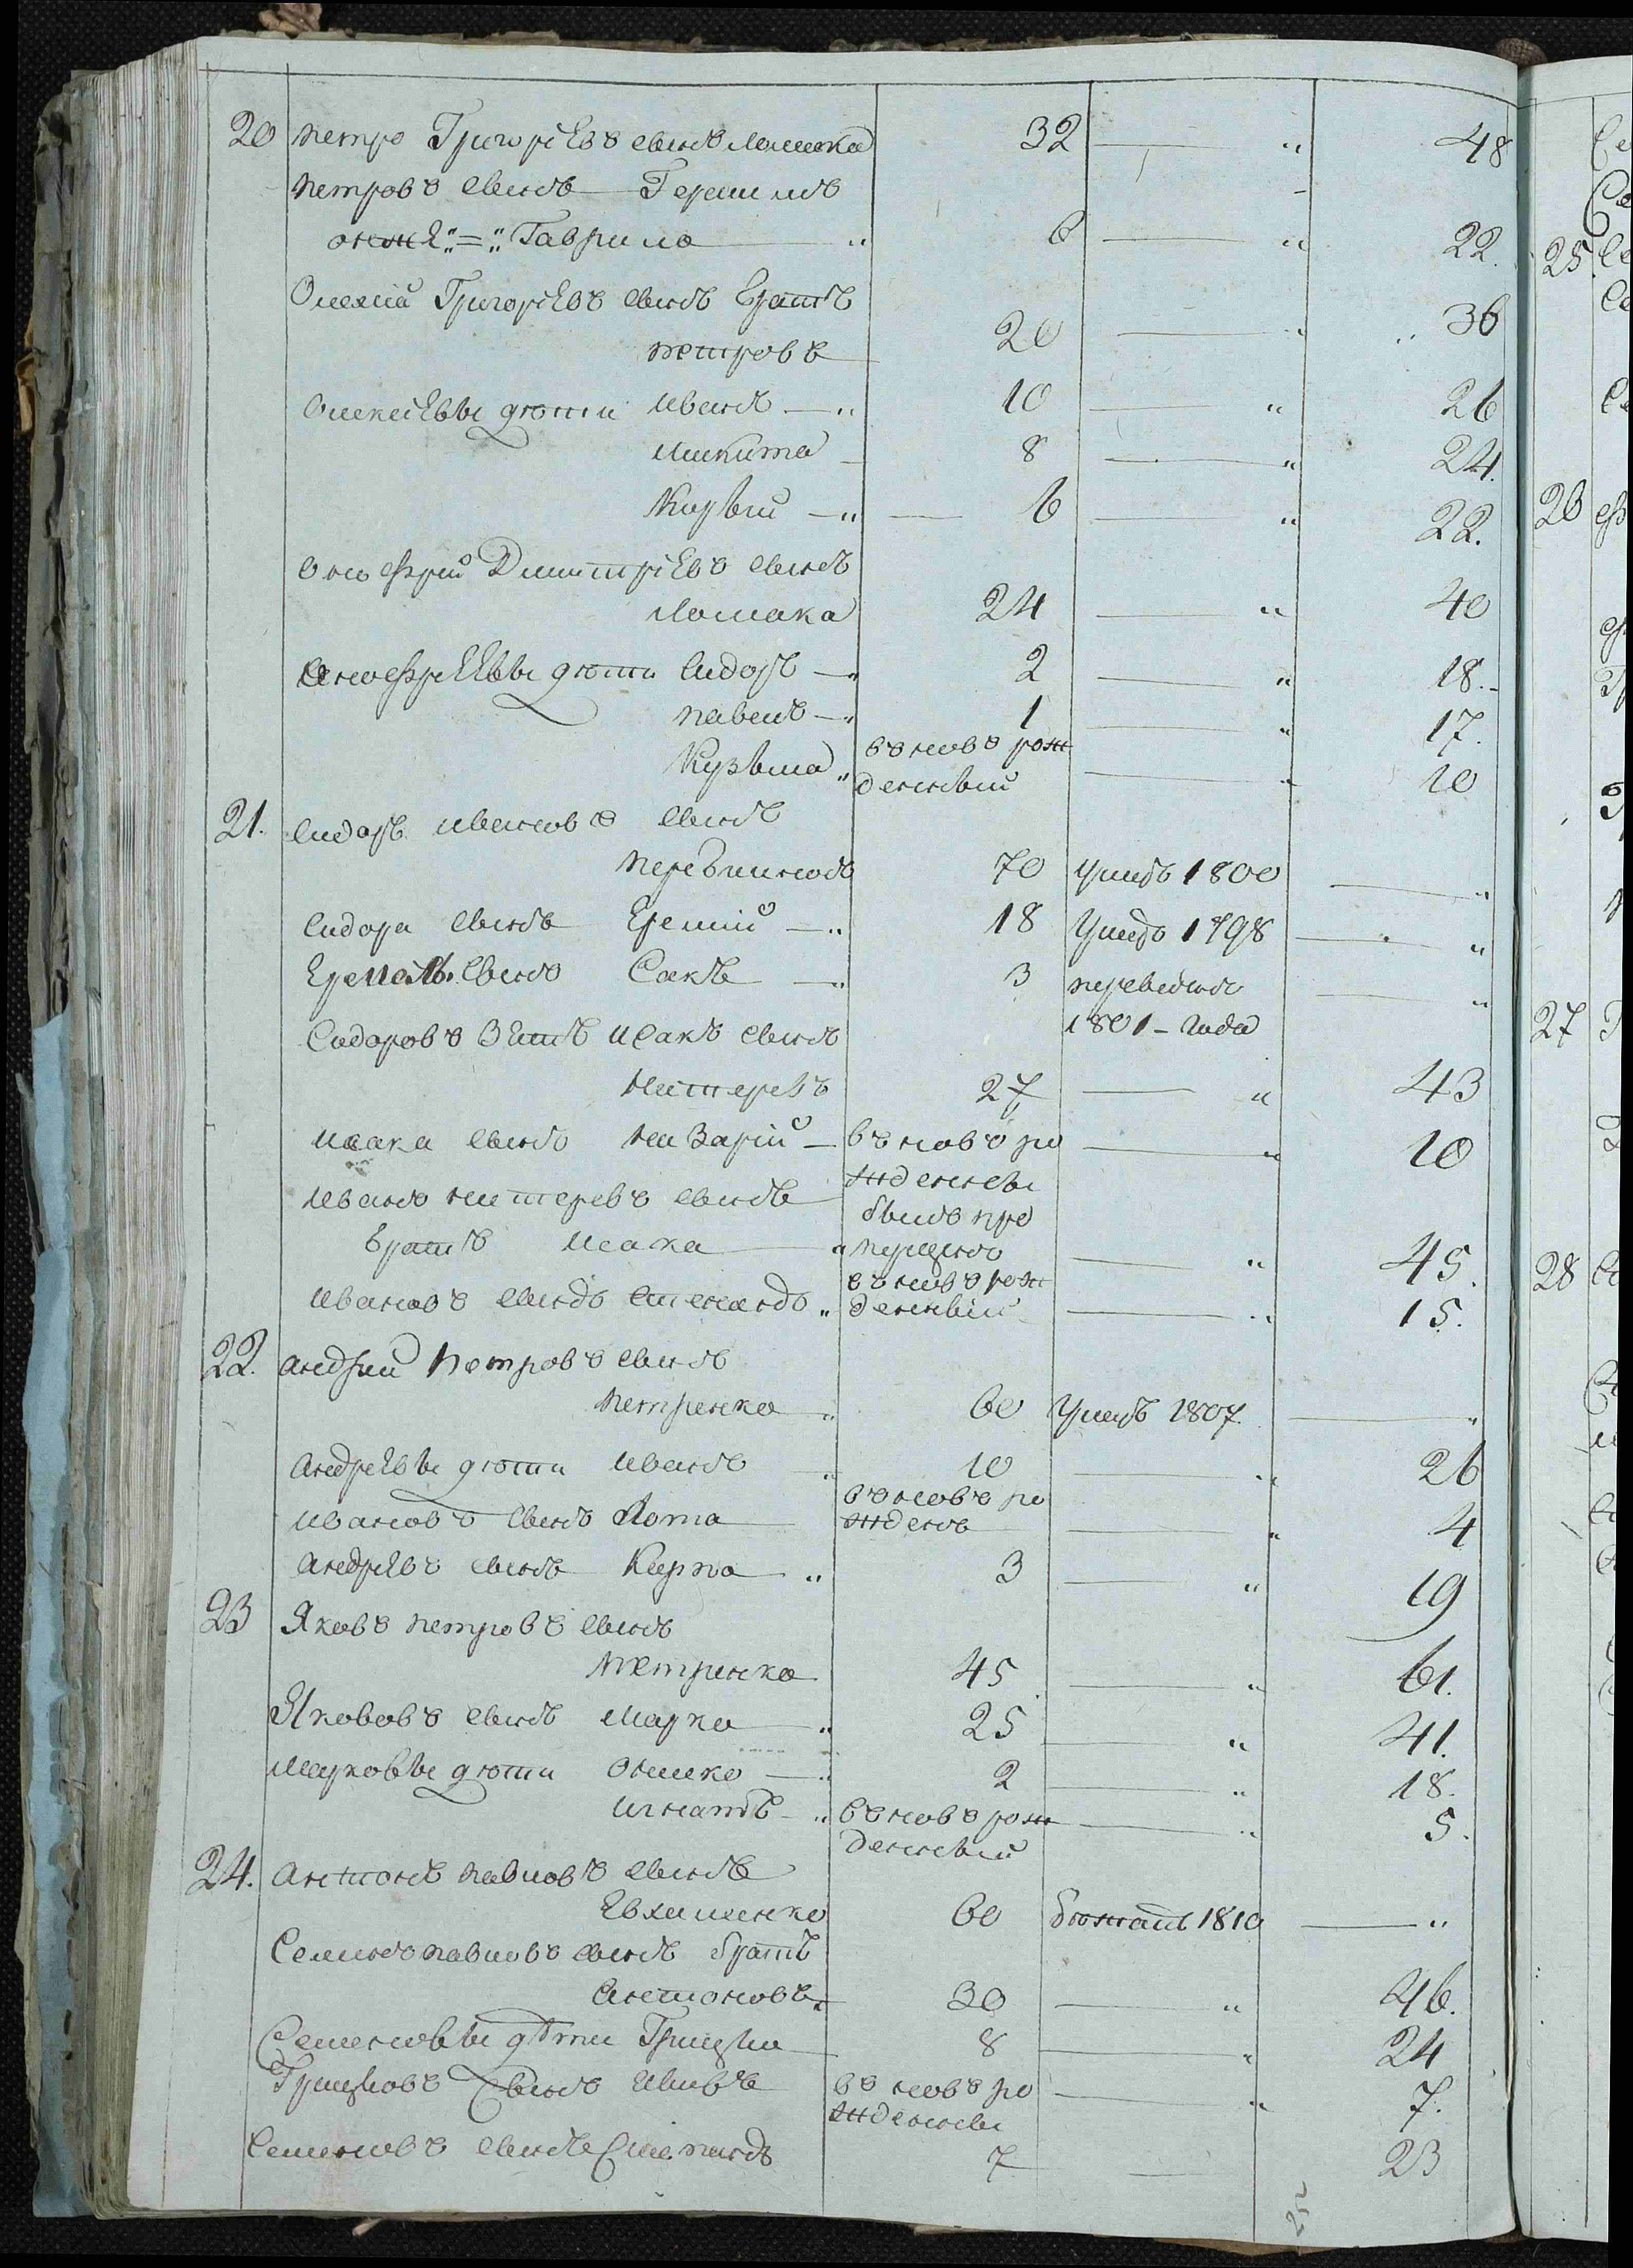 20 петро Григорíевъ сынъ Ломака 32 — " 48
петровъ сынъ Герасимъ
онже "=" Гаврило " 6 — " 22.
Олексій Григорíевъ сынъ братъ
петровъ 20 — " 36
Олексíевы дѣти Иванъ — " 10 — " 26
Микита 8 — " 24.
Кирѣй — " 6 — " 22.
Оноефрій Димитріевъ сынъ
Ломака 24 — " 40
Оноефріевы дѣти Сидоръ — " 2 — " 18.
павелъ — " 1 — " 17.
Кузьма " въ новъ рож — " 10
денный
21. Сидоръ Ивановъ сынъ
70 Умеръ 1800 — "
Сидора сынъ Еремій — " 18 Умеръ 1798 — "
Еремѣя сынъ Сакъ — " 3 переведенъ — "
1801 – Года
Сидоровъ зять Исакъ сынъ
Нестеревъ 27 — " 43
Исака сынъ Назарій — въ новъ ро — " 10
жденны
Иванъ Нестеревъ сынъ былъ про
братъ Исака " пущенъ — " 45.
въ новъ рож
Ивановъ сынъ Степанъ " денный — " 15.
22. Андрій Петровъ сынъ
петренко " 60 Умеръ 1807. — "
Андрíевы дѣти Иванъ " 10 — " 26
въ новъ ро
Ивановъ сынъ Хома жденъ — " 4
Андрíевъ сынъ Карпо " 3 — " 19
23 Яковъ петровъ сынъ
петренко 45 — " 61.
Якововъ сынъ Марко — " 25 — " 41.
Марковы дѣти Онисько — " 2 — " 18.
Игнатъ — " въ новъ рож — " 5.
денный
24. Антонъ павловъ сынъ
Евхименко 60 бѣжалъ 1810 — "
Семенъ павловъ сынъ братъ
Антоновъ " 30 — " 46.
Семеновы дѣти Грицко 8 — " 24
Грицковъ сынъ въ новъ ро — " 7.
жденны
Семеновъ сынъ Степанъ 7 — 23